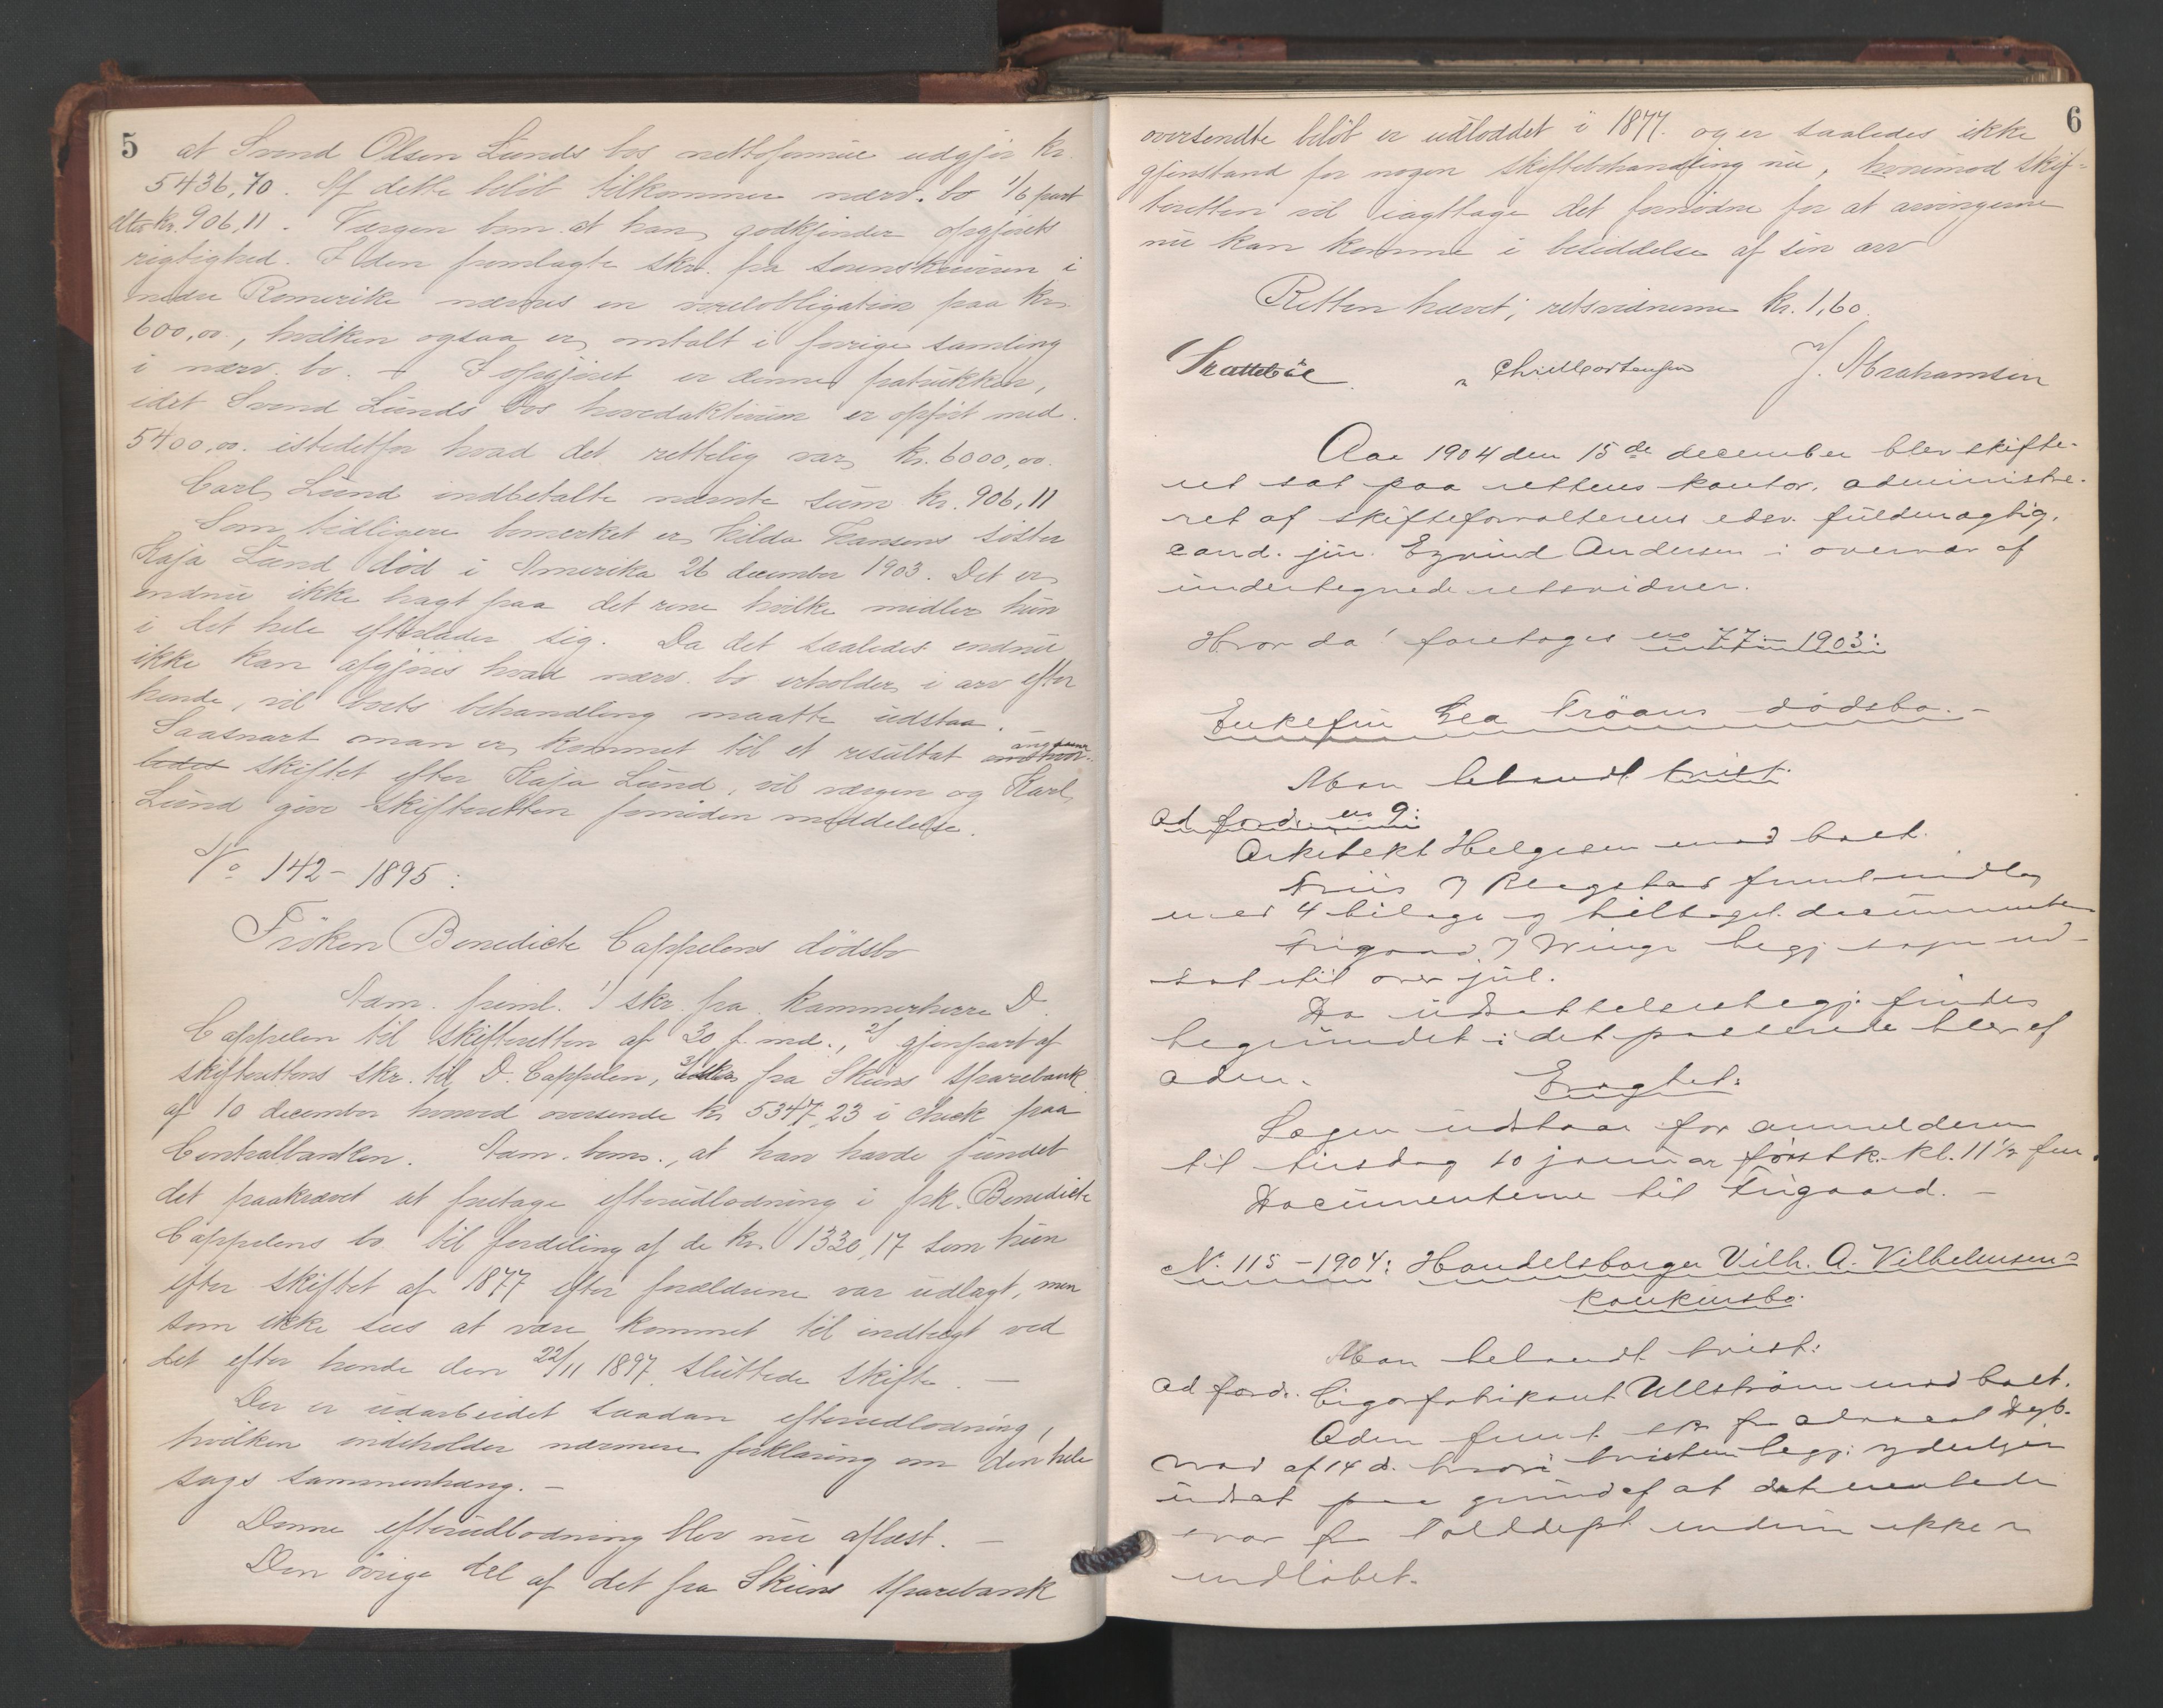 5
at Svend Olsen Lunds bos nettoformue udgjør kr.
5436,70. Af dette beløb tilkommer nærv. bo 1/6 part
eller kr. 906,11. Værgen bem. at han godkjender opgjørets
rigtighed. I den fremlagte skr. fra sorenskriveren i
nedre Romerike nævnes en vexelobligation paa kr.
600,00, hvilken ogsaa er omtalt i forrige samling
i nærv. bo. – I opgjøret er denne fratrukken,
idet Svend Lunds bos hovedaktivum er opført med
5400,00. istedetfor hvad det rettelig var kr. 6000,00.
Carl Lund indbetalte nævnte sum kr. 906,11
Som tidligere bemerket er Hilda Hansens søster
Kaja Lund død i Amerika 26 december 1903. Det er
endnu ikke bragt paa det rene hvilke midler hun
i det hele efterlader sig. Da det saaledes endnu
ikke kan afgjøres hvad nærv. bo erholder i arv efter
hende, vil boets behandling maatte udstaa.
Saasnart man er kommet til et resultat angaaende
skiftet efter Kaja Lund, vil værgen og Karl
Lund give skifteretten fornøden meddelelse.
No 142 – 1895:
Frøken Benedicte Cappelens dødsbo
Adm. freml. 1) skr. fra kammerherre D.
Cappelen til skifteretten af 30 f. md., 2) gjenpart af
skifterettens skr. til D. Cappelen, 3) skr. fra Skiens Sparebank
af 10 december hvorved oversende kr 5347,23 i check paa
Centralbanken. Adm. bem., at han havde fundet
det paakrævet at foretage efterudlodning i frk. Benedicte
Cappelens bo til fordeling af de kr. 1330,17 som hun
efter skiftet af 1877 efter forældrene var udlagt, men
som ikke sees at være kommet til indtægt ved
det efter hende den 22/11 1897 sluttede skifte. –
Der er udarbeidet saadan efterudlodning,
hvilken indeholder nærmere forklaring om den hele
sags sammenhæng. –
Denne efterudlodning blev nu aflæst. –
Den øvrige del af det fra Skiens Sparebank
6
oversendte beløb er udloddet i 1877. og er saaledes ikke
gjenstand for nogen skiftebehandling nu, hvorimod skif-
teretten vil iagttage det fornødne for at arvingerne
nu kan komme i besiddelse af sin arv
Retten hævet; retsvidnerne kr. 1,60.
J. Abrahamsen
Aar 1904 den 15de december blev skifte-
ret sat paa rettens kontor, administre-
ret af skifteforvalterens edsv. fuldmægtig,
cand. jur. Eyvind Andersen i overvær af
undertegnede retsvidner.
Hvor da! foretoges no 77 – 1903:
Enkefru Lea Tröans dødsbo. –
Man behandl. tvist:
ad ford. no 9:
Arkitekt Helgesen mod boet.
Friis f/ Ringstad freml. indlæg
med 4 bilage og tilbagel. documenterne
Frigaard f/ Winge begj. sagen ud-
sat til over jul.
Da udsættelsesbegj. findes
begrundet i det passerede blev af
adm.
Eragtet:
Sagen udstaar for anmelderen
til tirsdag 10 januar førstk. kl. 11 1/2 fm.
Documenterne til Frigaard. –
No 115 – 1904: Handelsborger Vilh. A. Vilhelmsens
konkursbo.
Man behandl. tvist:
ad ford. Cigarfabrikant Ullström mod boet.
Adm freml. skr fra advocat Dyb-
wad af 14 d. hvori tvisten begj. yderligere
udsat paa grund af at det ventede
svar fra Tolldept endnu ikke er
indløbet.